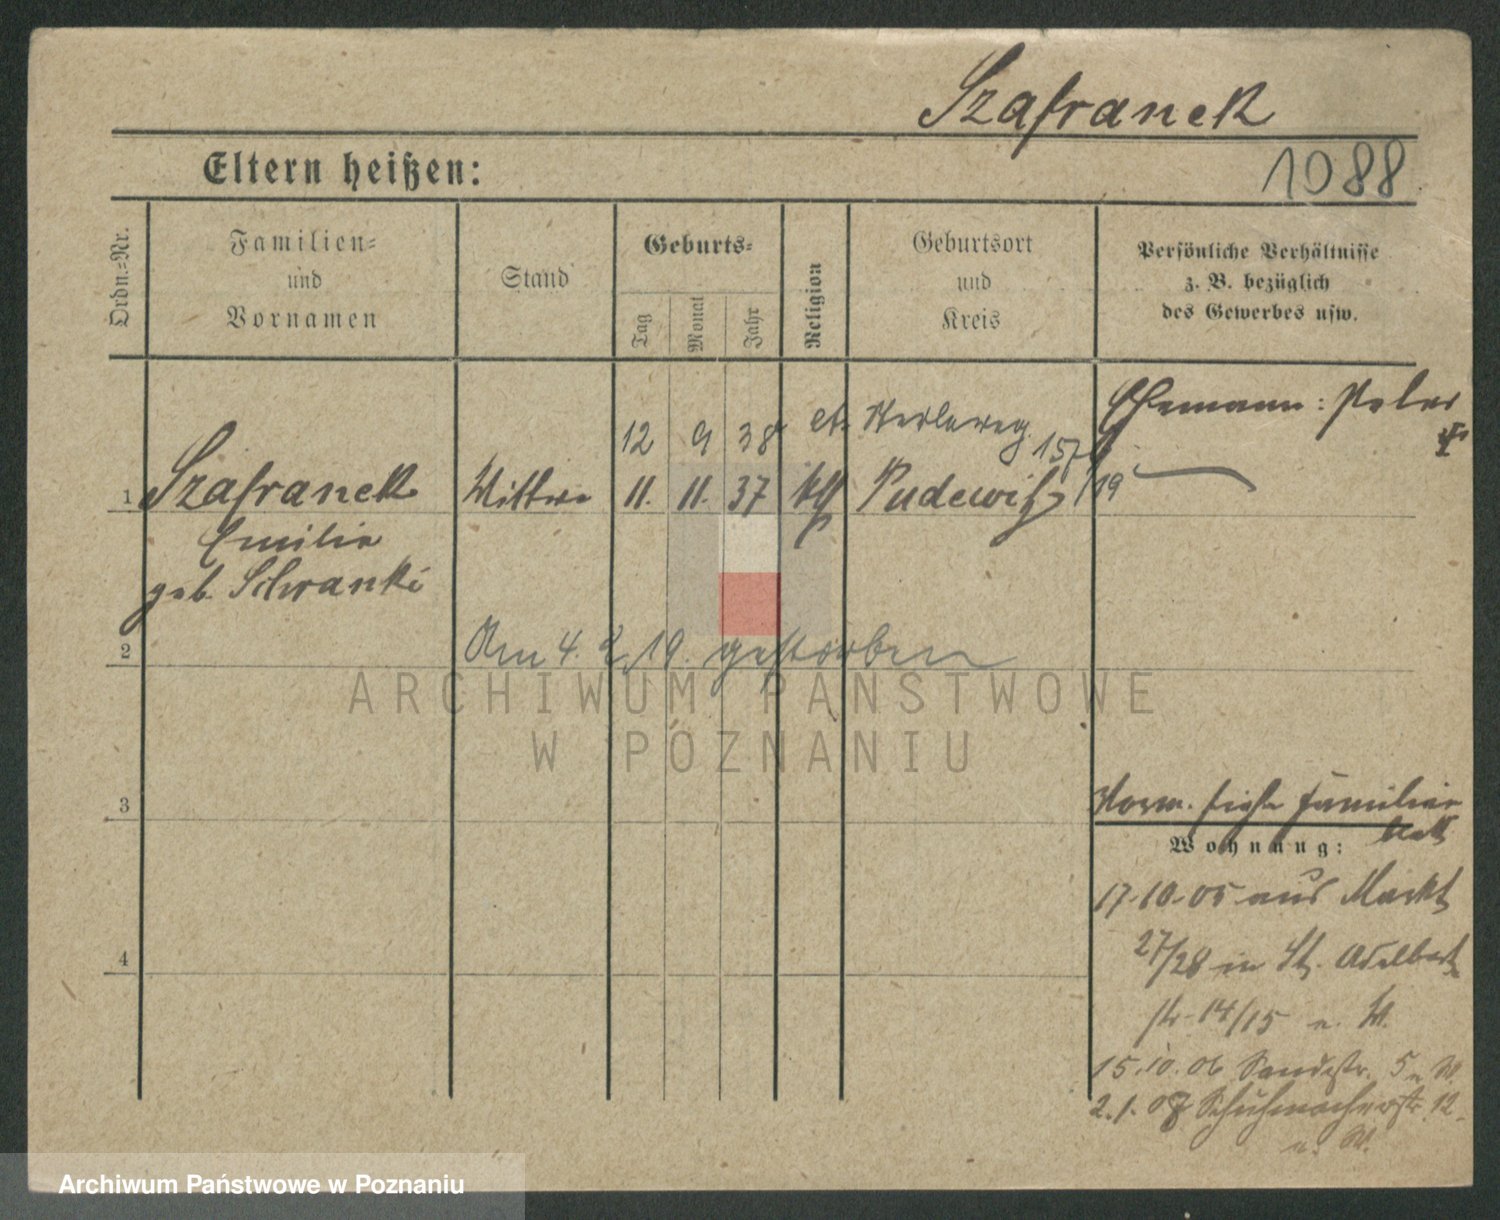 Szafranek
Eltern heißen:
1088
Ordn.-Nr.
Familien-
und
Vornamen
Stand
Geburts-
Tag
Monat
Jahr
Religion
Geburtsort
und
Kreis
Persönliche Verhältnisse
z. B. bezüglich
des Gewerbes usw.
Ehemann: Peter
12 9 38
1 Szafranek Wittwe 11. 11. 37 kth Pudewitz
Emilie
geb. Schranke
2 Am 4. 2. 19. gestorben
ARCHIWUM PAŃSTWOWE
W POZNANIU
3
Vorm. siehe Familien
blatt
Wohnung:
17.10.05 aus Markt
4
27/28 in St. Adalbert
str 14/15 n. W.
15.10.06 Sandstr. 5 n. W.
2.1.07 Schuhmacherstr. 12
n. W.
Archiwum Państwowe w Poznaniu